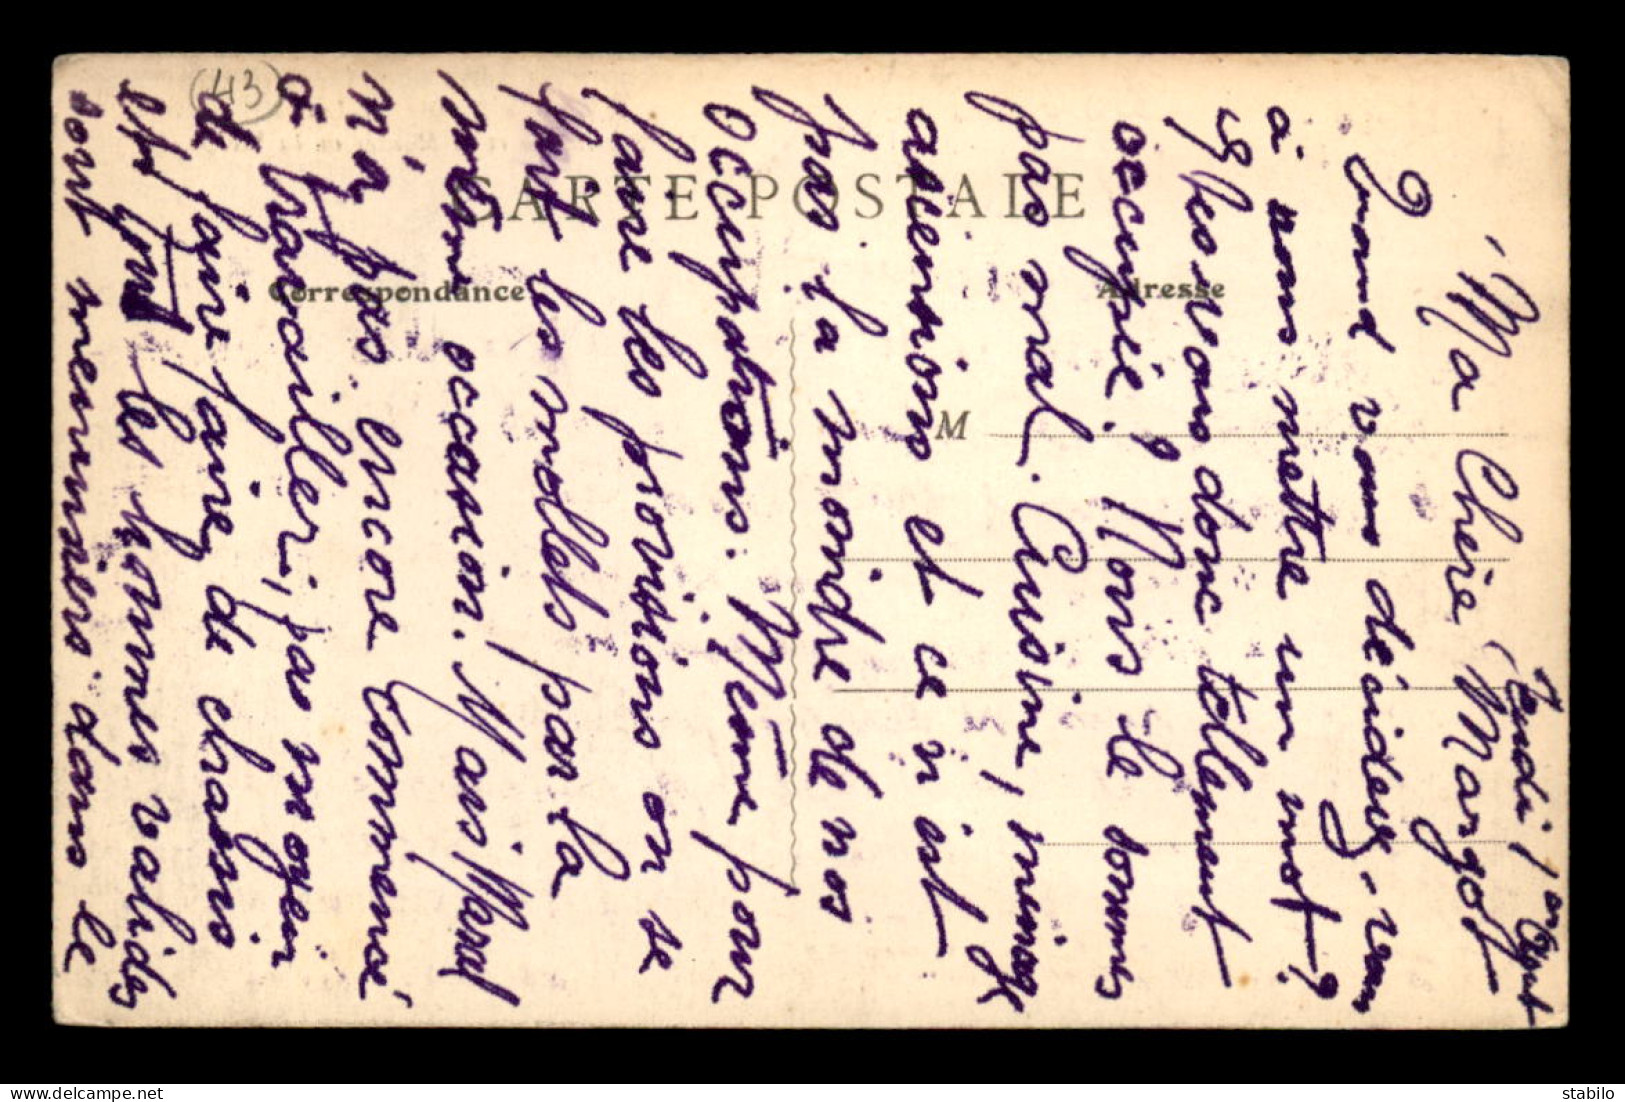 Jeudi 1er Août
Ma Chère Margot
Quand vous décidez-vous
à nous mettre un mot?
Etes vous donc tellement
occupé? Nous le sommes
pas mal. Cuisine, ménage
ascensions et ce n'est
pas la moindre de nos
occupations. Même pour
faire les provisions on se
fait les mollets par la
même occasion. Mais Marcel
n'a pas encore commencé
à travailler, pas moyen
de faire faire de chassis
et tous les hommes valides
sont menuisiers dans le
(43)
CARTE POSTALE
Correspondance
Adresse
M